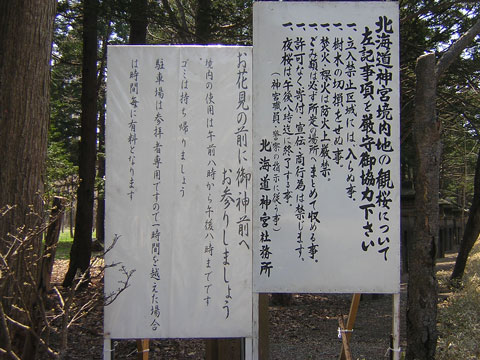 北海道神宮境内地の観桜について
左記事項を厳守御協力下さい
一、立入禁止区域へは、入らぬ事。
一、樹木の切損をせぬ事。
一、焚火・裸火は防火上厳禁。
一、ご み 類は必ず所定の場所へまとめて収める事。
一、許可なく寄付・宣伝・商行為は禁じます。
一、夜桜は午後八時迄に終了する事。
（神宮職員・警察の指示に従う事）
北海道神宮社務所
お花見の前に御神前へ
お参りしましょう
境内の使用は午前八時から午後八時までです
ゴミは持ち帰りましょう
駐車場は参拝者専用ですので一時間を越えた場合
は時間毎に有料となります